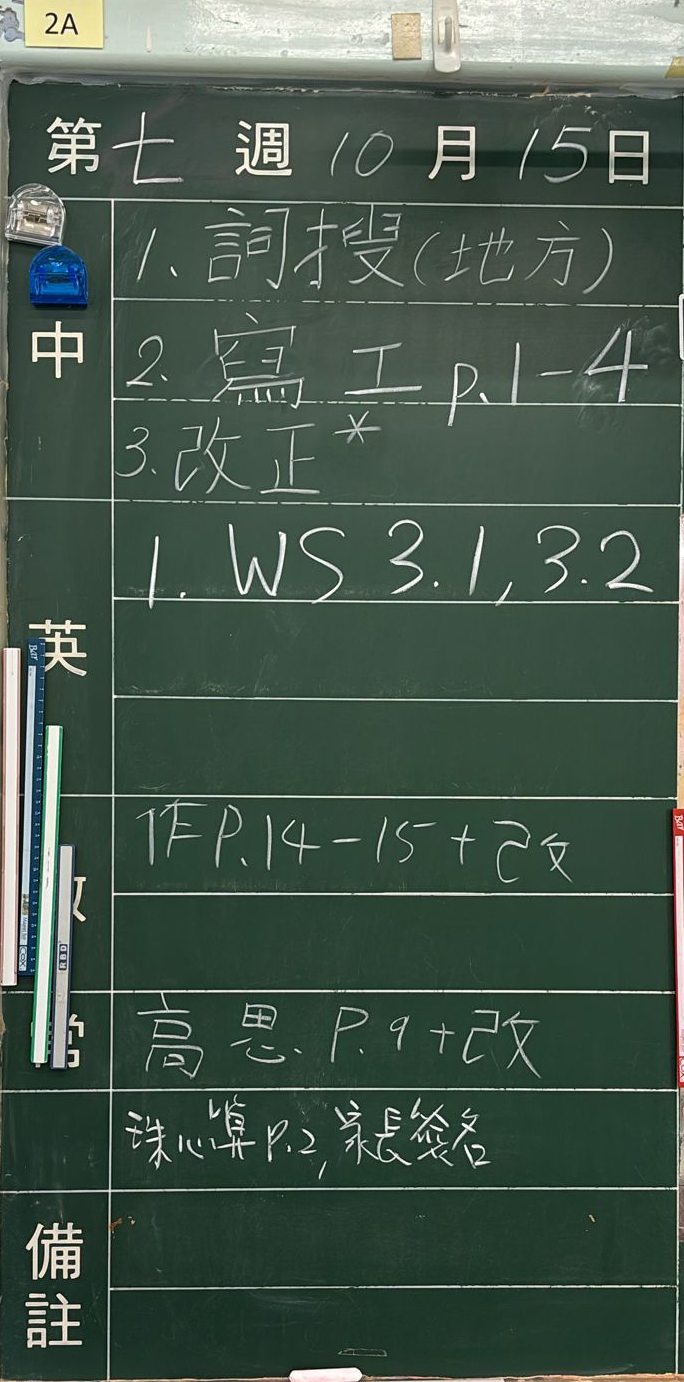 2A
第七週10月15日
中
1. 詞搜(地方)
2. 寫工p.1-4
3. 改正*
英
1. WS 3.1, 3.2
作P.14-15+改
常
高思 P.9+改
珠心算P.2,家長簽名
備註